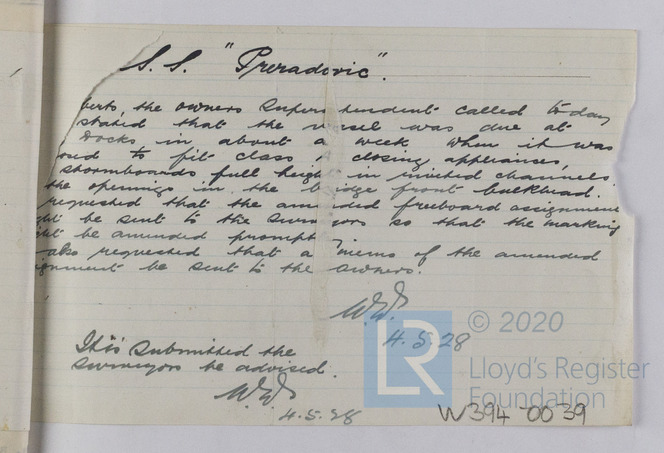 S. S. "Preradovic".
berts the owners Superintendent called today
stated that the vessel was due at
Docks in about a week when it was
osed to fit class 1 closing appliances,
stormboards full height in riveted channels
the openings in the bridge front bulkhead.
requested that the amended freeboard assignment
ght be sent to the Surveyors so that the marking
ght be amended promptly.
also requested that a memo of the amended
ignment be sent to the owners.
4.5.28
It is submitted the
surveyors be advised.
4.5.28
© 2020
LR
Lloyd's Register
Foundation
W394-0039